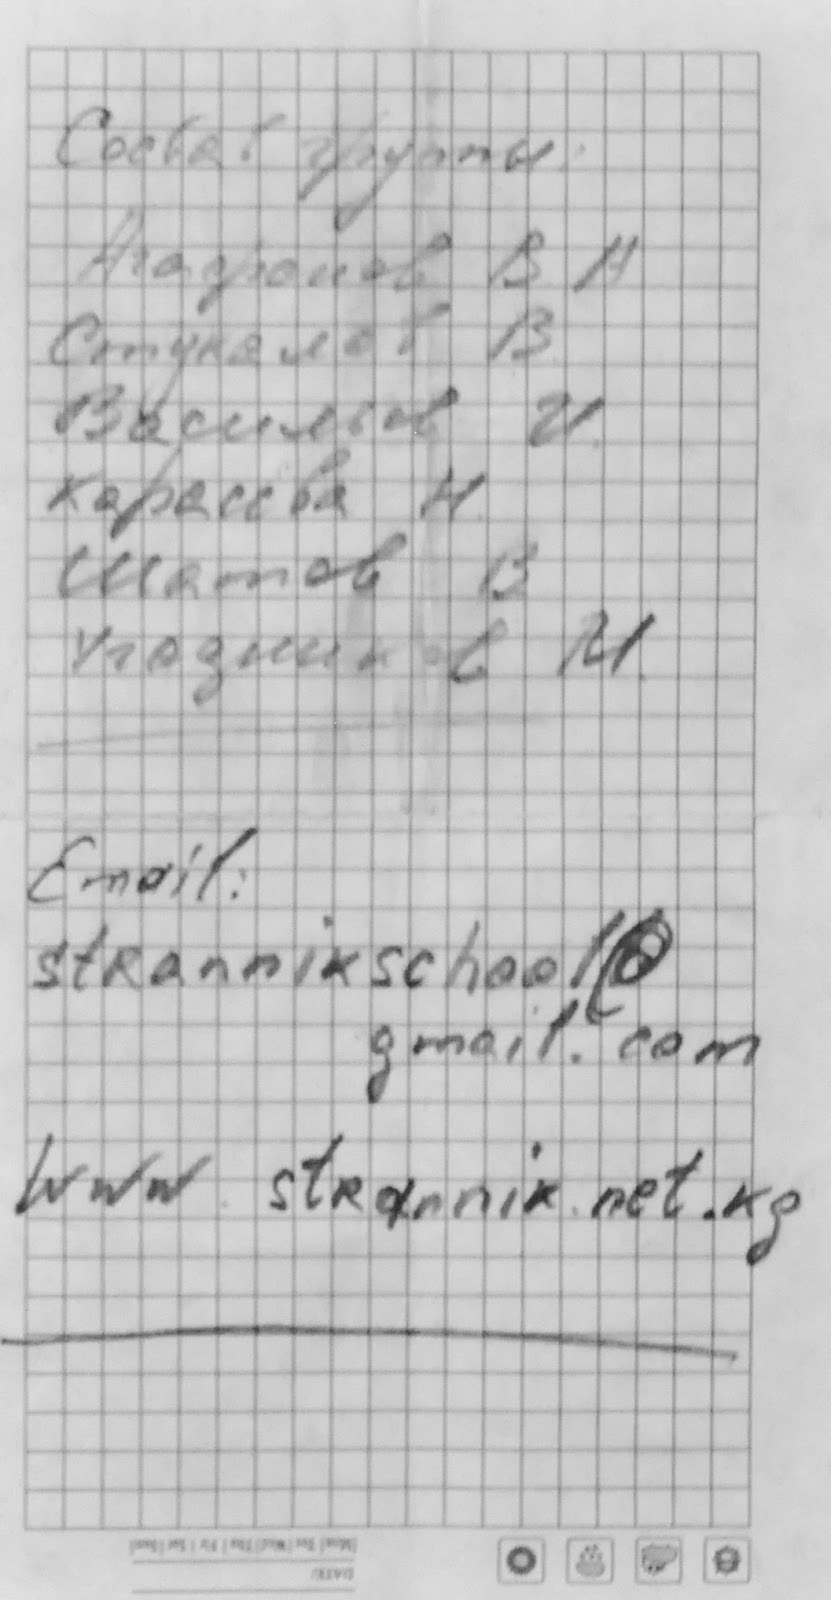 Состав группы:
Агафонов В Н
Стукалов В
Васильев И.
Карасева Н.
Шатов В
Угодников И.
Email:
strannikschool@
gmail.com
www.strannik.net.kg
DATE:
|Mon| Tue |Wed|Thu | Fri | Sat |Sun|